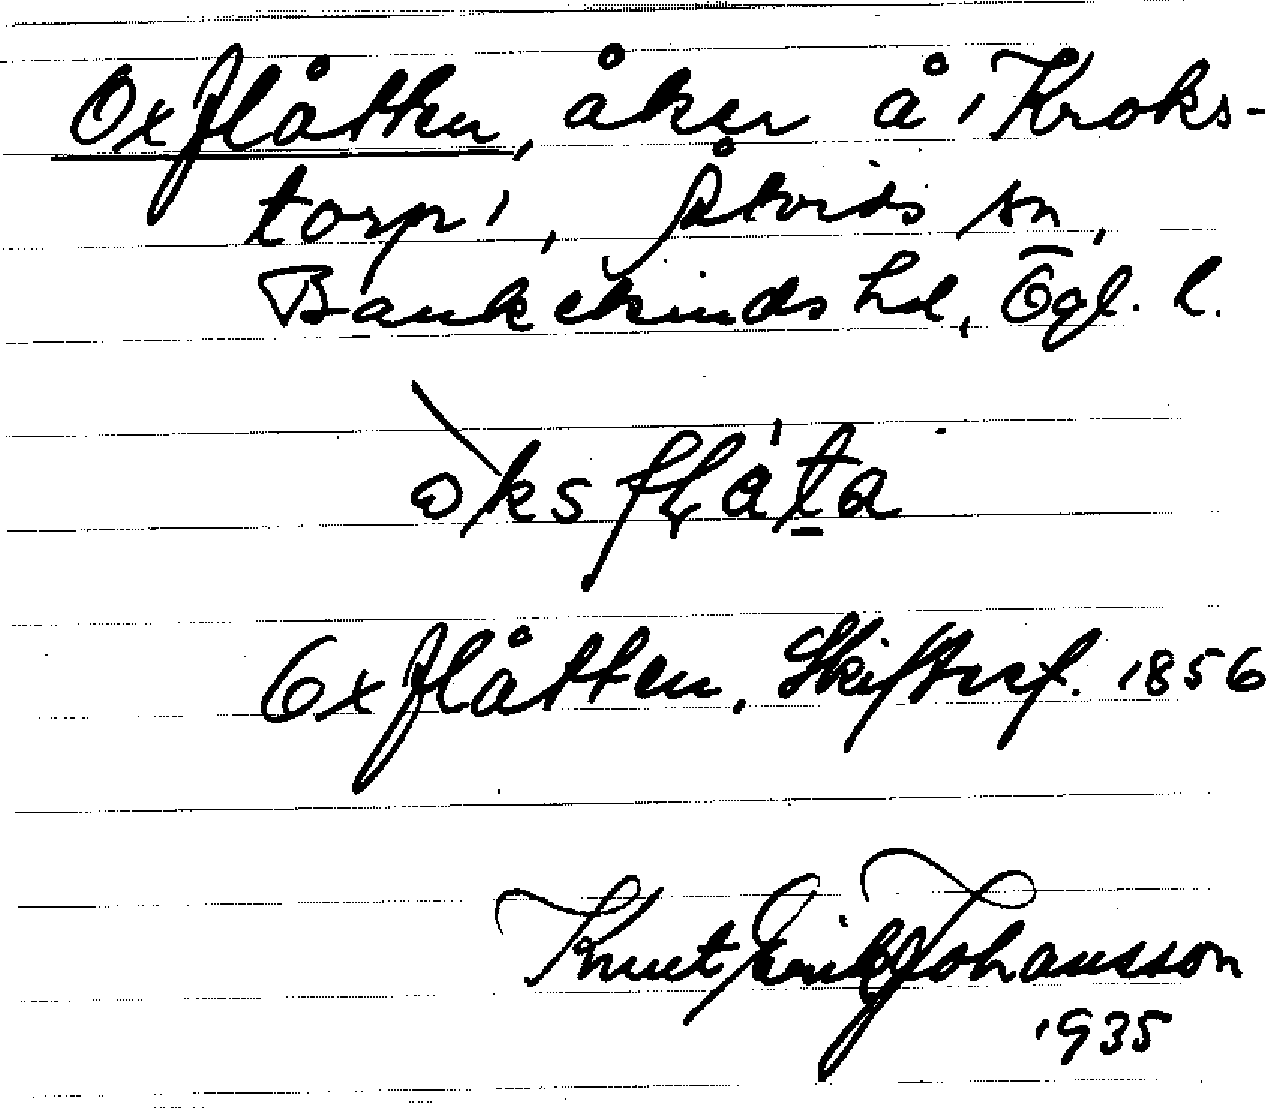 Oxflåtten, åker å 'Kroks-
torp', Åtvids sn,
Bankekinds hd, Ögl. l.
oksflåta
Oxflåtten, Skiftesf. 1856
Knut Erik Johansson
1935